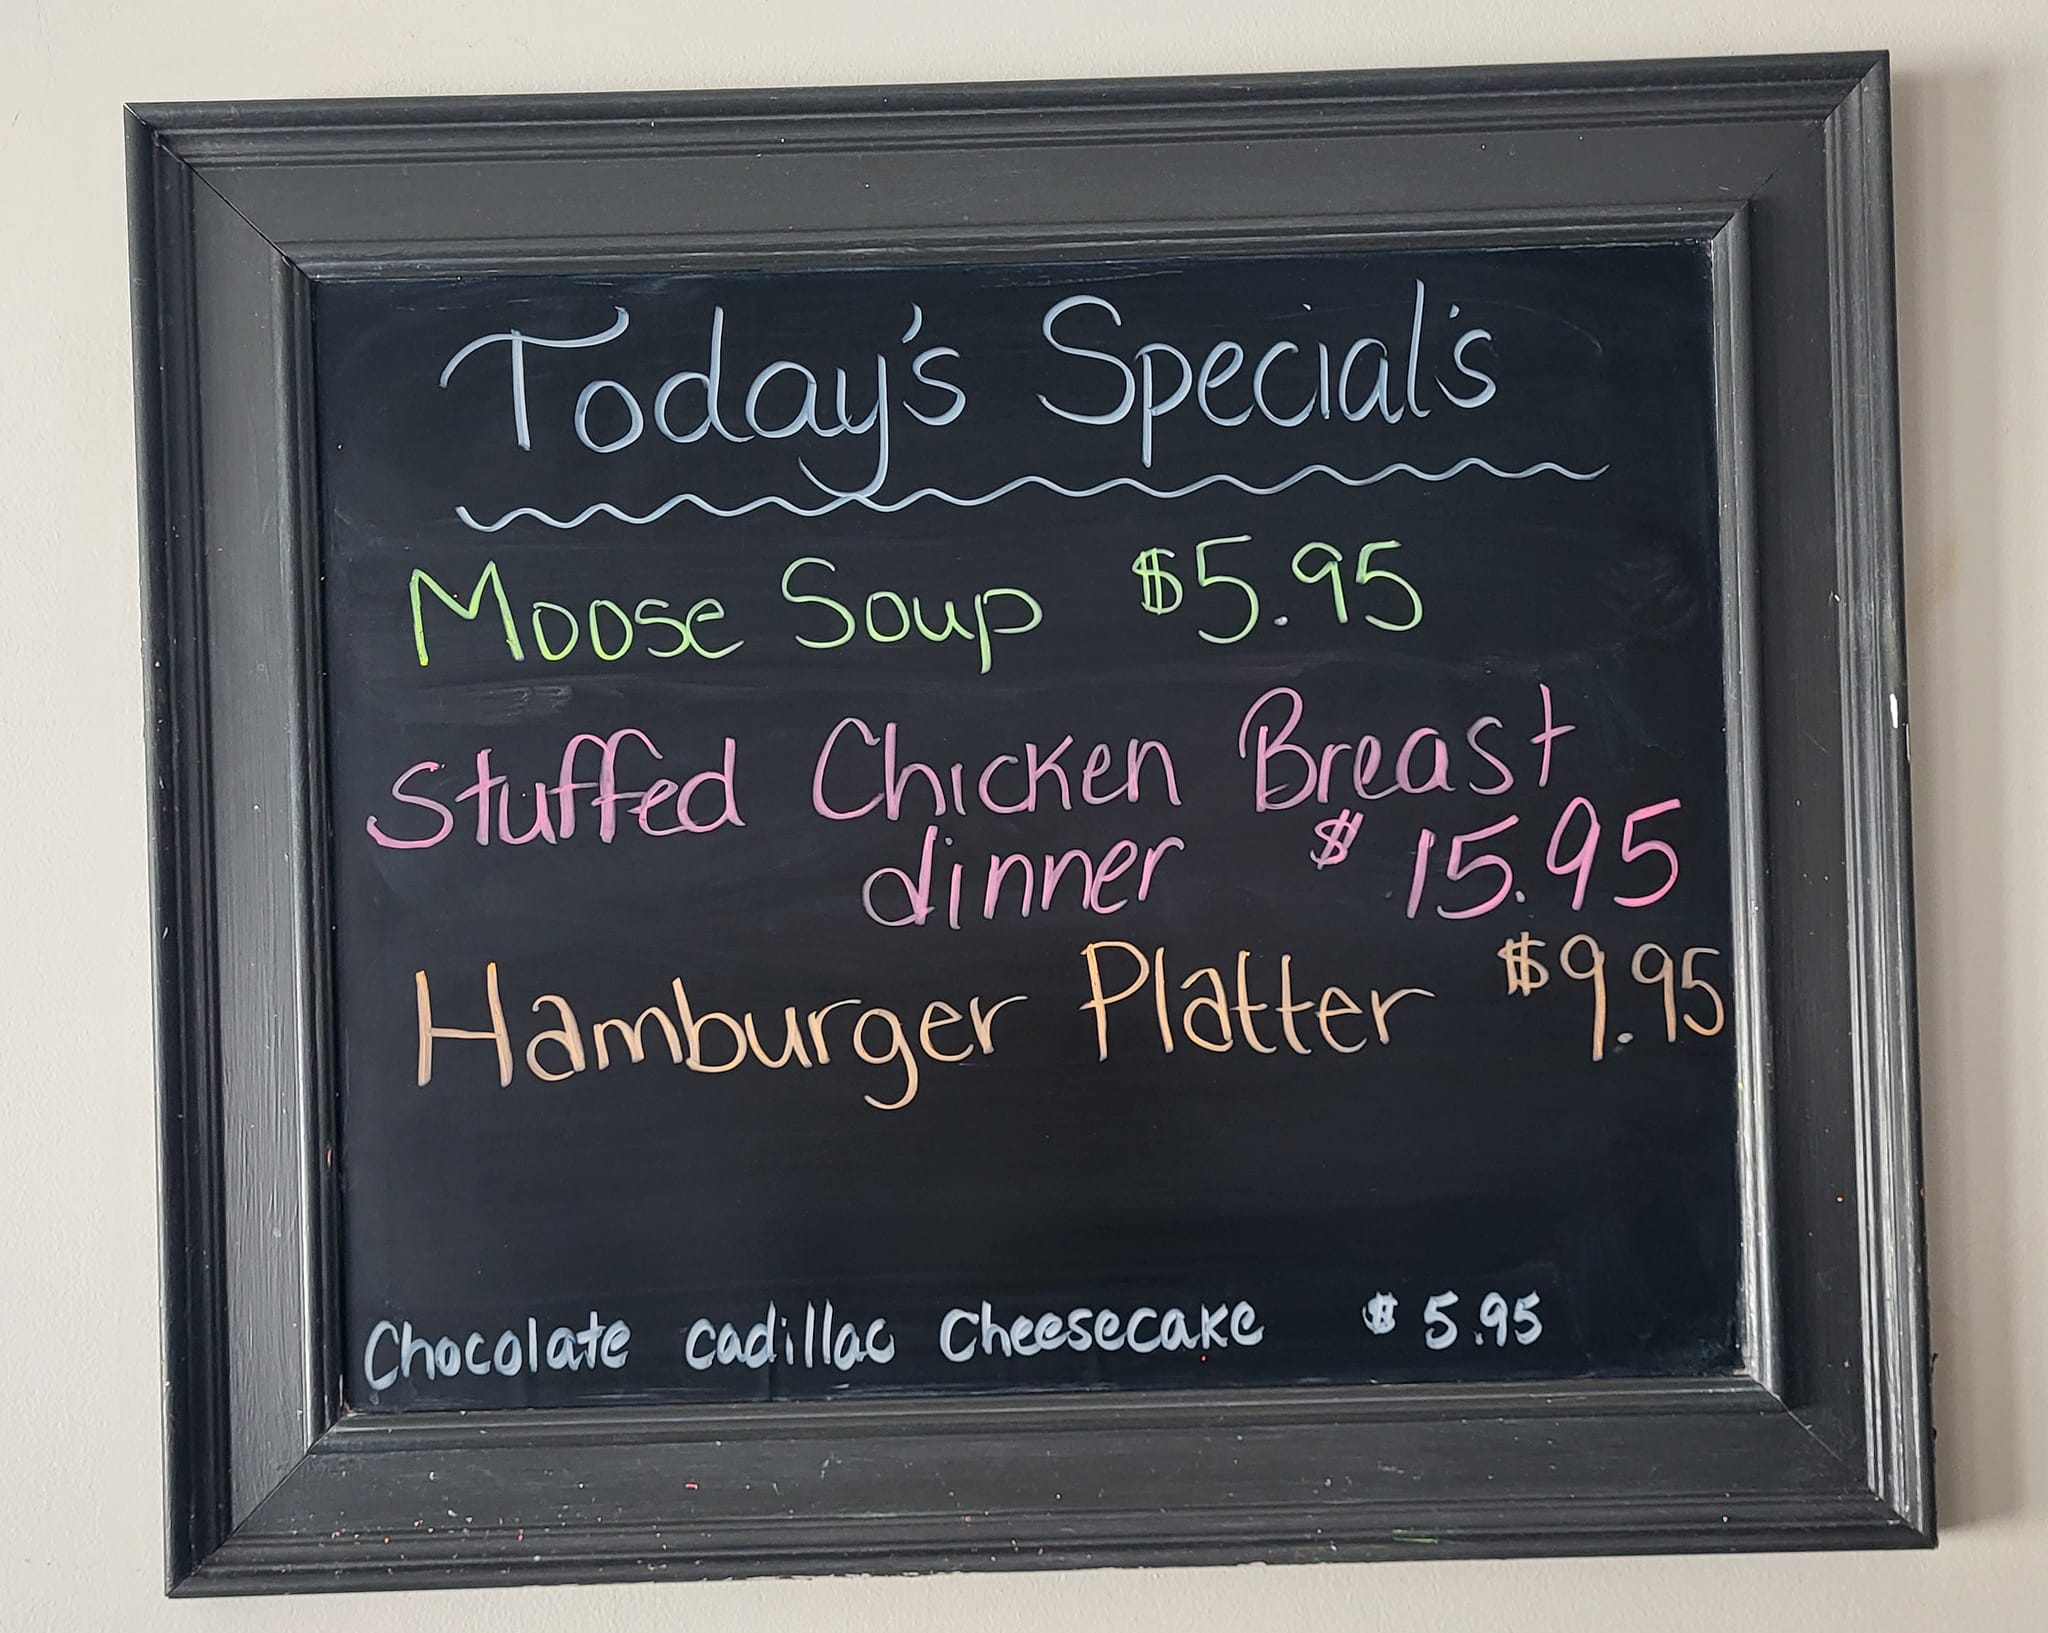 Today's Special's
Moose Soup $5.95
Stuffed Chicken Breast
dinner $ 15.95
Hamburger Platter $9.95
Chocolate Cadillac Cheesecake $ 5.95